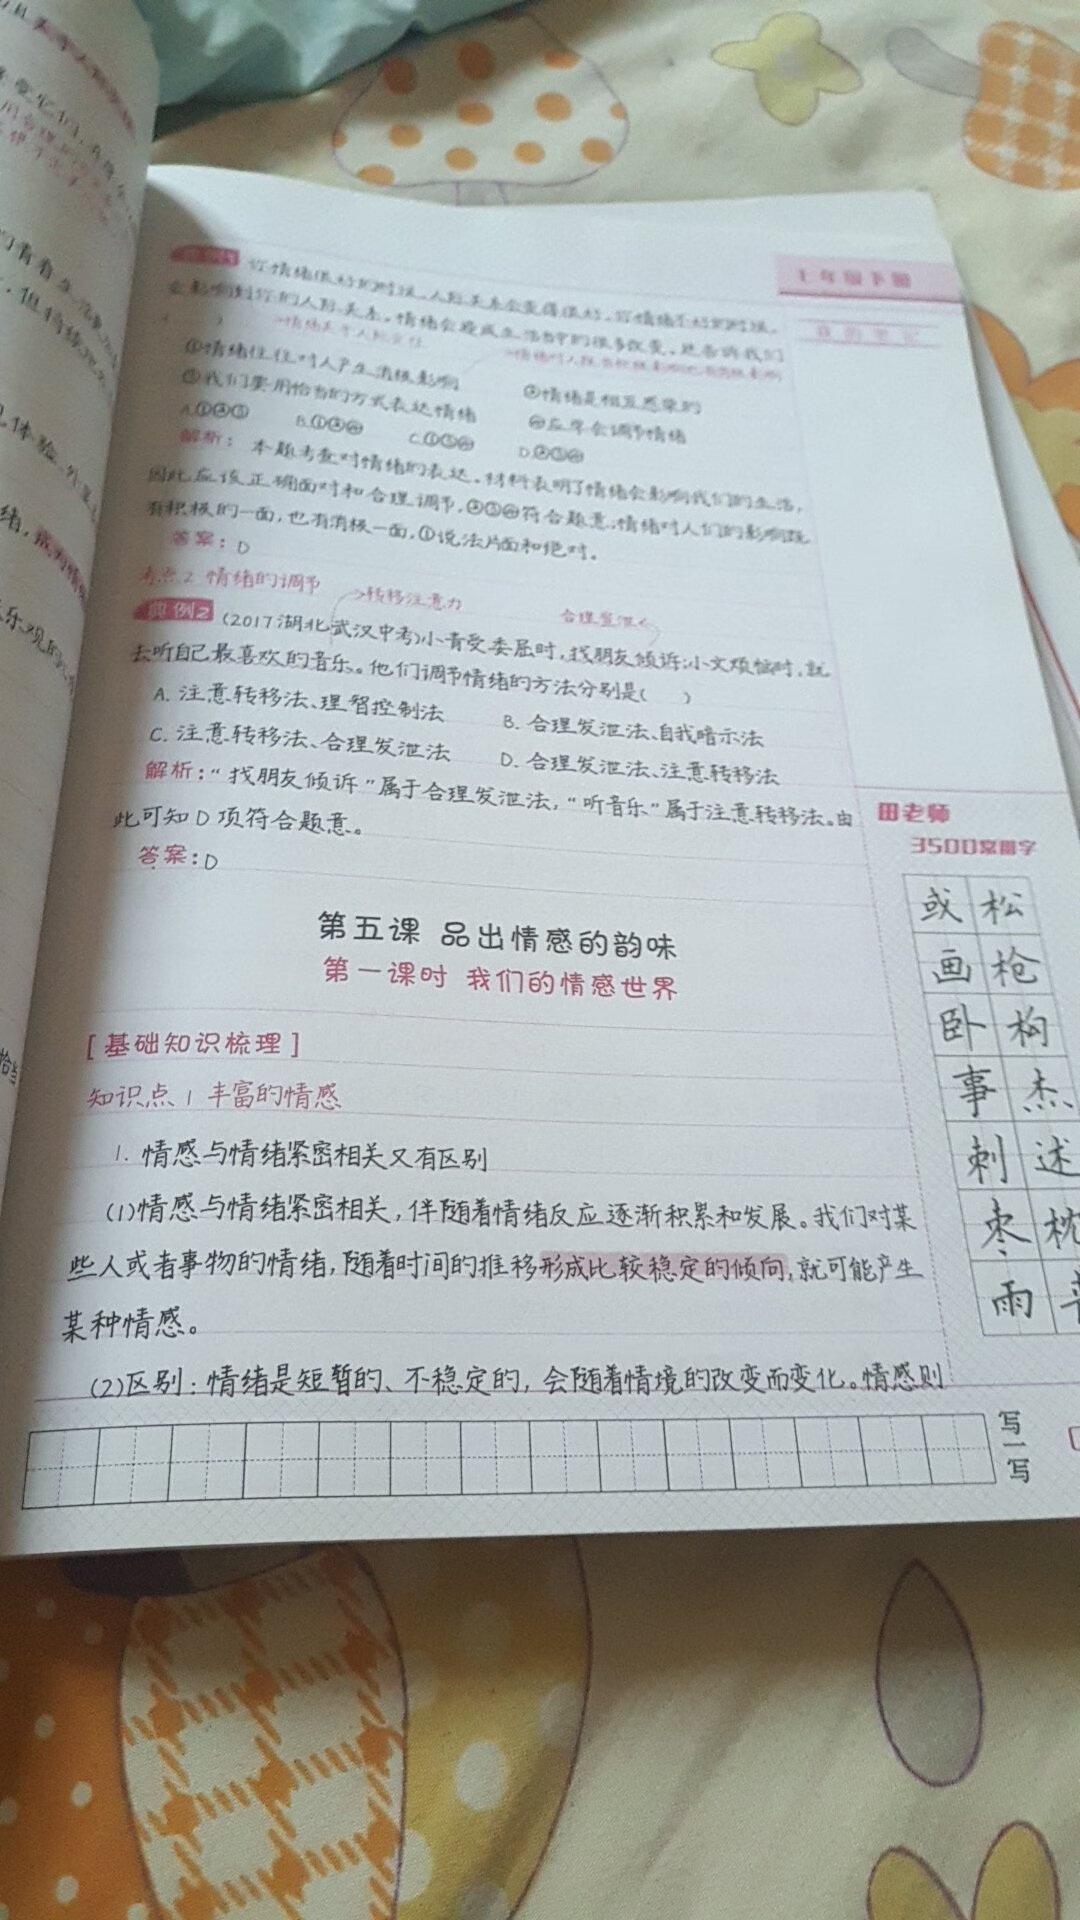 七年级下册
典例1 你情绪很好的时候，人际关系会变得很好，你情绪不好的时候，
会影响到你的人际关系。情绪会造成生活当中的很多改变。这告诉我们
( )
①情绪往往对人产生消极影响 ②情绪是相互感染的
③我们要用恰当的方式表达情绪 ④应学会调节情绪
A.①②③ B.①②④ C.①③④ D.②③④
解析：本题考查对情绪的表达。材料表明了情绪会影响我们的生活，
因此应该正确面对和合理调节，②③④符合题意；情绪对人们的影响既
有积极的一面，也有消极一面，①说法片面和绝对。
答案：D
考点2 情绪的调节
→转移注意力 合理宣泄
典例2 (2017湖北武汉中考)小青受委屈时，找朋友倾诉；小文烦恼时，就
去听自己最喜欢的音乐。他们调节情绪的方法分别是( )
A. 注意转移法、理智控制法 B. 合理发泄法、自我暗示法
C. 注意转移法、合理发泄法 D. 合理发泄法、注意转移法
解析：“找朋友倾诉”属于合理发泄法，“听音乐”属于注意转移法。由
此可知D项符合题意。
答案：D
第五课 品出情感的韵味
第一课时 我们的情感世界
[基础知识梳理]
知识点1 丰富的情感
1. 情感与情绪紧密相关又有区别
(1)情感与情绪紧密相关，伴随着情绪反应逐渐积累和发展。我们对某
些人或者事物的情绪，随着时间的推移形成比较稳定的倾向，就可能产生
某种情感。
(2)区别：情绪是短暂的、不稳定的，会随着情境的改变而变化。情感则
写一写
田老师
3500常用字
或 松
画 枪
卧 构
事 杰
刺 述
枣 枕
雨